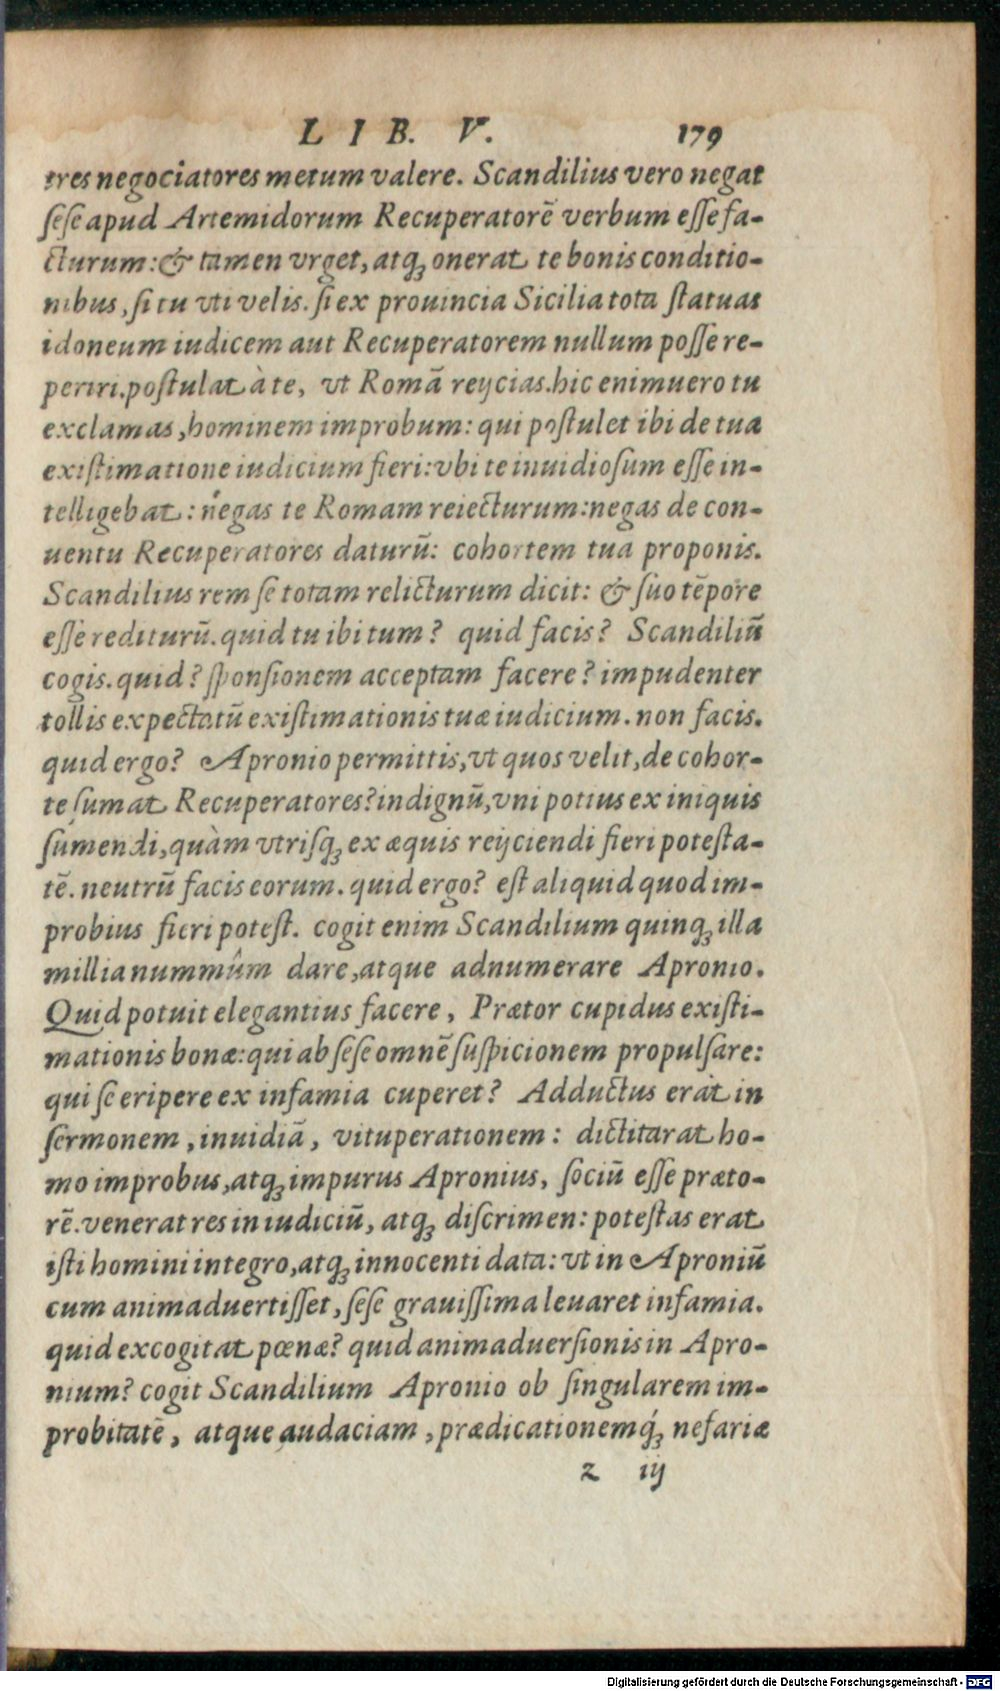 LIB. V. 179
tres negociatores metum valere. Scandilius vero negat
ſeſe apud Artemidorum Recuperatorē verbum eſſe fa-
cturum: & tamen vrget, atq; onerat te bonis conditio-
nibus, ſi tu vti velis. ſi ex prouincia Sicilia tota ſtatuas
idoneum iudicem aut Recuperatorem nullum poſſe re-
periri. poſtulat à te, vt Romā reijcias. hic enimuero tu
exclamas, hominem improbum: qui poſtulet ibi de tua
exiſtimatione iudicium fieri: vbi te inuidioſum eſſe in-
telligebat: negas te Romam reiecturum: negas de con-
uentu Recuperatores daturū: cohortem tua proponis.
Scandilius rem ſe totam relicturum dicit: & ſuo tēpore
eſſe rediturū. quid tu ibi tum? quid facis? Scandiliū
cogis. quid? ſponſionem acceptam facere? impudenter
tollis expectatū exiſtimationis tuæ iudicium. non facis.
quid ergo? Apronio permittis, vt quos velit, de cohor-
te ſumat Recuperatores? indignū, vni potius ex iniquis
ſumendi, quàm vtriſq; ex æquis reijciendi fieri poteſta-
tē. neutrū facis eorum. quid ergo? eſt aliquid quod im-
probius fieri poteſt. cogit enim Scandilium quinq; illa
millia nummûm dare, atque adnumerare Apronio.
Quid potuit elegantius facere, Prætor cupidus exiſti-
mationis bonæ: qui ab ſeſe omnē ſuſpicionem propulſare:
qui ſe eripere ex infamia cuperet? Adductus erat in
ſermonem, inuidiā, vituperationem: dictitarat ho-
mo improbus, atq; impurus Apronius, ſociū eſſe præto-
rē. venerat res in iudiciū, atq; diſcrimen: poteſtas erat
iſti homini integro, atq; innocenti data: vt in Aproniū
cum animaduertiſſet, ſeſe grauiſſima leuaret infamia.
quid excogitat pœnæ? quid animaduerſionis in Apro-
nium? cogit Scandilium Apronio ob ſingularem im-
probitatē, atque audaciam, prædicationemq́; nefariæ
z iij
Digitalisierung gefördert durch die Deutsche Forschungsgemeinschaft - DFG